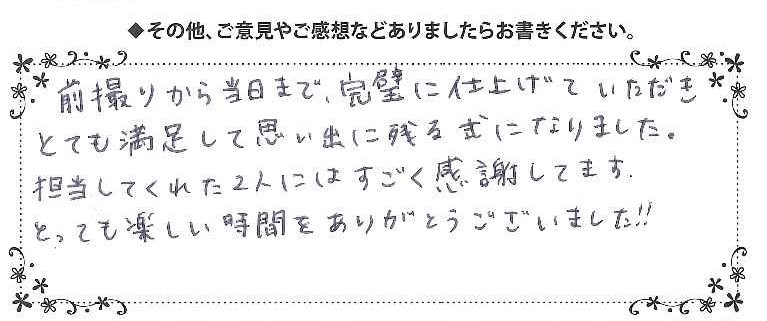 ◆その他、ご意見やご感想などありましたらお書きください。
前撮りから当日まで、完璧に仕上げていただき
とても満足して思い出に残る式になりました。
担当してくれた2人にはすごく感謝してます.
とっても楽しい時間をありがとうございました!!